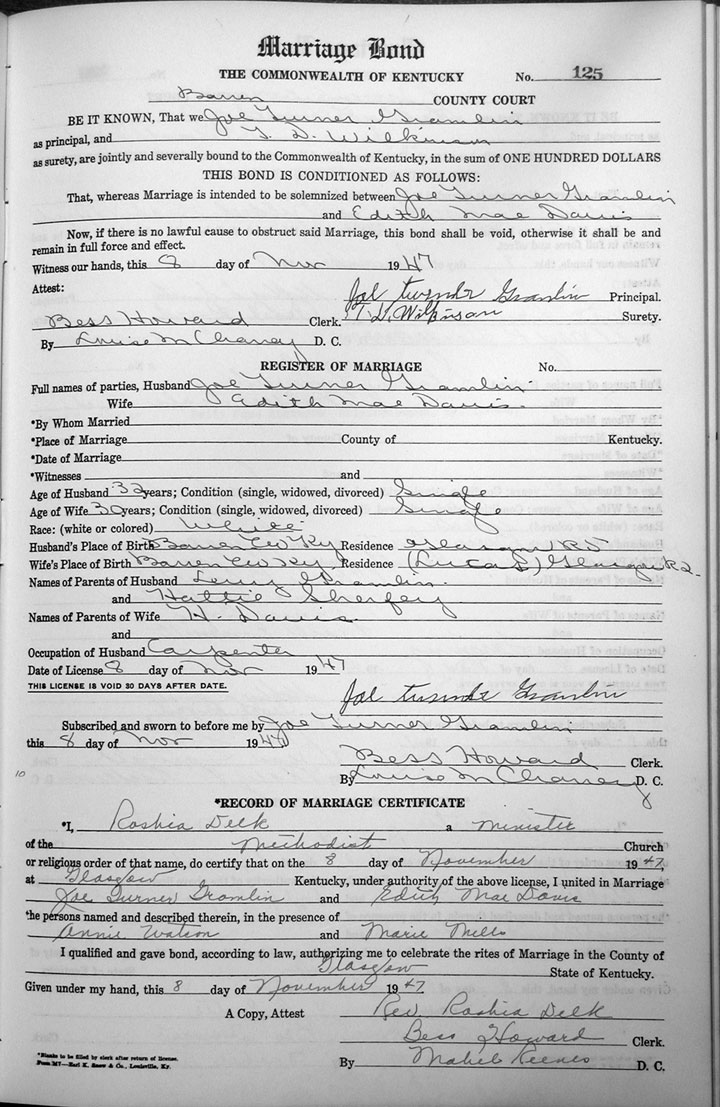 Marriage Bond
THE COMMONWEALTH OF KENTUCKY No. 125
Barren COUNTY COURT
BE IT KNOWN, That we Joe Turner Gramlin
as principal, and T. D. Wilkinson
as surety, are jointly and severally bound to the Commonwealth of Kentucky, in the sum of ONE HUNDRED DOLLARS
THIS BOND IS CONDITIONED AS FOLLOWS:
That, whereas Marriage is intended to be solemnized between Joe Turner Gramlin
and Edith Mae Davis
Now, if there is no lawful cause to obstruct said Marriage, this bond shall be void, otherwise it shall be and
remain in full force and effect.
Witness our hands, this 8 day of Nov 1947
Attest:
Joe Gramlin Principal.
T. D. Wilkinson Surety.
Bess Howard Clerk.
By Louise McChaney D. C.
REGISTER OF MARRIAGE No.
Full names of parties, Husband Joe Turner Gramlin
Wife Edith Mae Davis.
*By Whom Married
*Place of Marriage County of Kentucky.
*Date of Marriage
*Witnesses and
Age of Husband 32 years; Condition (single, widowed, divorced) Single
Age of Wife 30 years; Condition (single, widowed, divorced) Single
Race: (white or colored) White
Husband's Place of Birth Barren Co Ky Residence Glasgow R5
Wife's Place of Birth Barren Co Ky. Residence (Lucas) Glasgow R2.
Names of Parents of Husband Gramlin.
and Hattie Sherfey
Names of Parents of Wife H. Davis.
and
Occupation of Husband Carpenter
Date of License 8 day of Nov 1947
THIS LICENSE IS VOID 30 DAYS AFTER DATE.
Joe Gramlin
Subscribed and sworn to before me by Joe Turner Gramlin
this 8 day of Nov 1947
Bess Howard Clerk.
By Louise McChaney D. C.
10
*RECORD OF MARRIAGE CERTIFICATE
*I, Roshia Delk a Minister
of the Methodist Church
or religious order of that name, do certify that on the 8 day of November 1947,
at Glasgow Kentucky, under authority of the above license, I united in Marriage
Joe Turner Gramlin and Edith Mae Davis
the persons named and described therein, in the presence of
Annie Watson and Marie Mills
I qualified and gave bond, according to law, authorizing me to celebrate the rites of Marriage in the County of
Glasgow State of Kentucky.
Given under my hand, this 8 day of November 1947
A Copy, Attest Rev. Roshia Delk
Bess Howard Clerk.
By Mabel Reeves D. C.
*Blanks to be filled by clerk after return of license.
Form M7—Earl K. Snow & Co., Louisville, Ky.